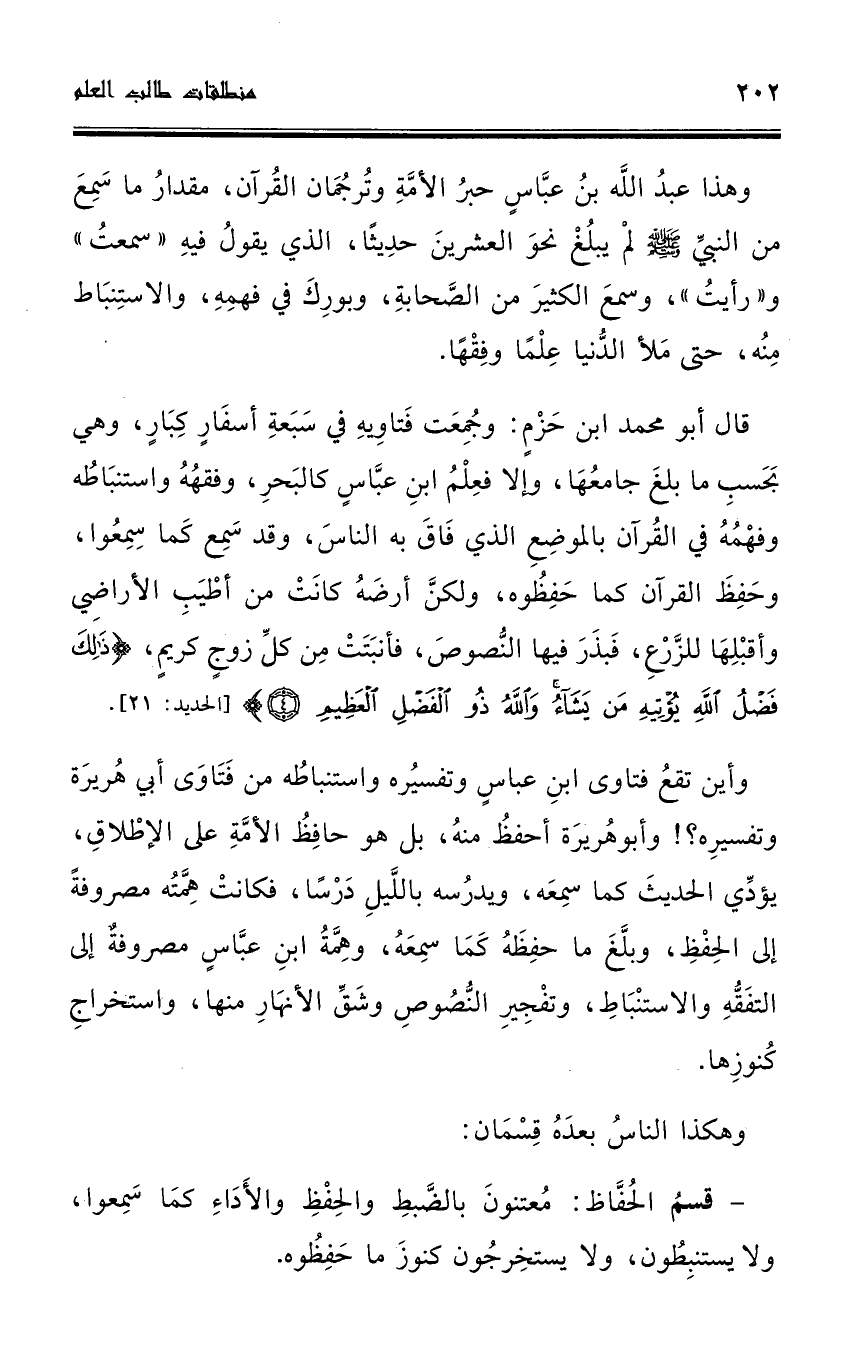 ٢٠٢ منطلقات طالب العلم
وهذا عبدُ اللَّه بنُ عبَّاسٍ حبرُ الأمَّةِ وتُرجُمَان القُرآن، مقدارُ ما سَمِعَ
من النبيِّ ﷺ لمْ يبلُغْ نحوَ العشرينَ حدِيثًا، الذي يقولُ فيهِ «سمعتُ»
و«رأيتُ»، وسمعَ الكثيرَ من الصَّحابةِ، وبورِكَ في فهمِهِ، والاستِنبَاط
مِنُه، حتى مَلأ الدُّنيا عِلْمًا وفِقْهًا.
قال أبو محمد ابن حَزْمٍ: وجُمِعَت فَتاوِيهِ في سَبَعةِ أسفَارٍ كِبَارٍ، وهي
بَحَسبِ ما بلغَ جامعُهَا، وإلا فعِلْمُ ابنِ عبَّاسٍ كالبَحرِ، وفقهُهُ واستنبَاطُه
وفهْمُهُ في القُرآن بالموضِعِ الذي فَاقَ به الناسَ، وقد سَمِع كَما سِمِعُوا،
وحَفِظَ القرآن كما حَفِظُوه، ولكنَّ أرضَهُ كانَتْ من أطْيَبِ الأراضِي
وأقبْلِهَا للزَّرْعِ، فَبذَرَ فيها النُّصوصَ، فأنبَتَتْ مِن كلِّ زوجٍ كريمٍ، ﴿ذَٰلِكَ
فَضْلُ ٱللَّهِ يُؤْتِيهِ مَن يَشَآءُۚ وَٱللَّهُ ذُو ٱلْفَضْلِ ٱلْعَظِيمِ ٤﴾ [الحديد: ٢١].
وأين تقعُ فتاوى ابنِ عباسٍ وتفسيُره واستنباطُه من فَتَاوَى أبي هُريرَة
وتفسيرِه؟! وأبوهُريرَة أحفظُ منهُ، بل هو حافِظُ الأمَّةِ على الإطْلاقِ،
يؤدِّي الحديثَ كما سمِعَه، ويدرُسه باللَّيلِ دَرْسًا، فكانتْ هِمَّتُه مصروفةً
إلى الحِفْظِ، وبلَّغَ ما حفِظَهُ كَمَا سمِعَهُ، وهِمَّةُ ابنِ عبَّاسٍ مصروفةٌ إلى
التفَقُّهِ والاستنْبَاطِ، وتفْجِيرِ النُّصُوصِ وشَقِّ الأنهَارِ منها، واستخراجِ
كُنوزِها.
وهكذا الناسُ بعدَهُ قِسْمَان:
- قسمُ الحُفَّاظ: مُعتنونَ بالضَّبطِ والحِفْظِ والأَدَاءِ كمَا سَمِعوا،
ولا يستنبِطُون، ولا يستخِرجُون كنوزَ ما حَفِظُوه.